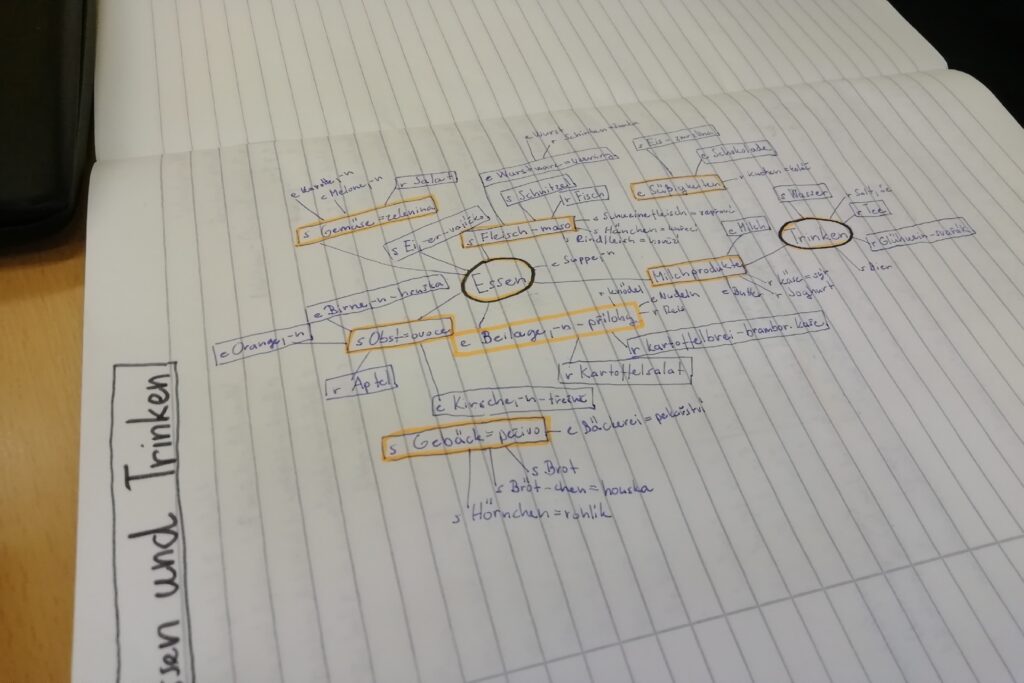 e Wurst
r Schinken
e Wurstware
s Schnitzel
r Fisch
s Eis
e Schokolade
e Süßigkeiten
r Kuchen = koláč
e Karotte, -n
e Melone, -n
r Salat
s Gemüse = zelenina
s Ei, -er - vajíčko
s Fleisch - maso
e Schweinefleisch
s Hänchen
s Rindfleich
e Suppe-n
s Wasser
r Saft
r Tee
Trinken
r Glühwein - svařák
s Bier
e Milch
Milchprodukte
r Käse = sýr
r Joghurt
e Butter
Essen
e Birne, -n - hruška
e Orange, -n
s Obst = ovoce
r Apfel
e Kirsche, -n - třešně
e Beilage, -n - přílohy
r Knödel
e Nudeln
r Reis
r Kartoffelbrei - brambor. kaše
r Kartoffelsalat
s Gebäck = pečivo
e Bäckerei = pekařství
s Brot
s Bröt-chen = houska
s Hörnchen = rohlík
ssen und Trinken